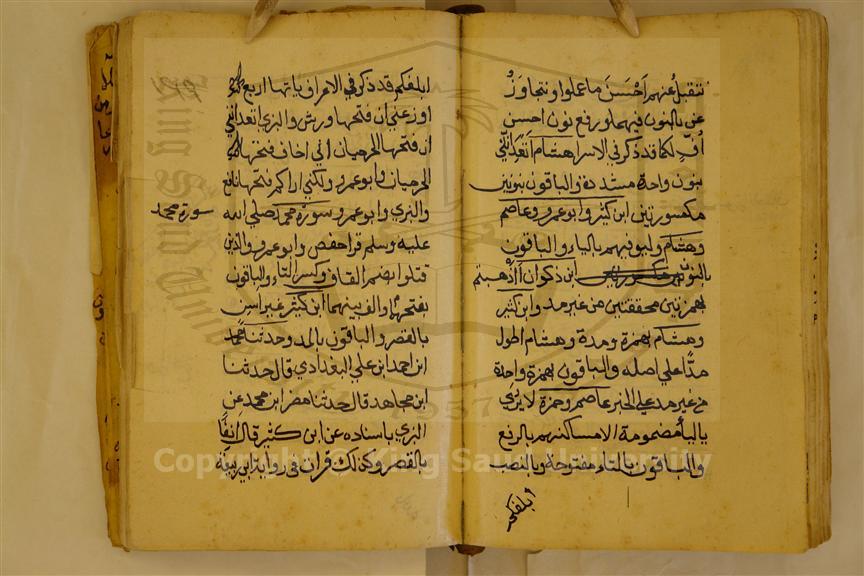 نتقبل عنهم أَحْسَنَ ما عملوا ونتجاوَزُ
عن بالنون فيهما ورفع نون احسن
أُفٍّ لكما قد ذكر في الاسرا هشام اَتَعِدَانّي
بنون واحدة مشددة والباقون بنونين
مكسورتين ابن كثير وابو عمرو وعاصم
وهشام وليوفيهم بالياء والباقون
بالنون ابن ذكوان أَأَذهبتم
بهمزتين محققتين من غير مد وابن كثير
وهشام بهمزة ومدة وهشام اطول
مدًّا علي اصله والباقون بهمزة واحدة
من غير مد علي الخبر عاصم وحمزة لا يُرَي
بالياء مضمومة الا مساكنهم بالرفع
والباقون بالتاء مفتوحة وبالنصب
وابلغكم
ابلغكم قد ذكر في الاعراف ياتها اربع
اوزعني ان فتحها ورش والبزي اتعدانني
ان فتحها الحرميان اني اخاف فتحها
الحرميان وابو عمرو ولكني اراكم فتحها نافع
والبزي وابو عمرو سورة محمد صلي الله
سورة محمد
عليه وسلم قرا حفص وابو عمرو والذين
قتلوا بضم القاف وكسر التاء والباقون
بفتحها والف بينهما ابن كثير غير اسن
بالقصر والباقون بالمد وحدثنا محمد
ابن احمد ابن علي البغدادي قال حدثنا
ابن مجاهد قال حدثنا مضر ابن محمد عن
البزي باسناده عن ابن كثير قال انفًا
بالقصر وكذلك قرات في رواية ابي ربيعة
Copyright © King Saud University
King Saud University
1957